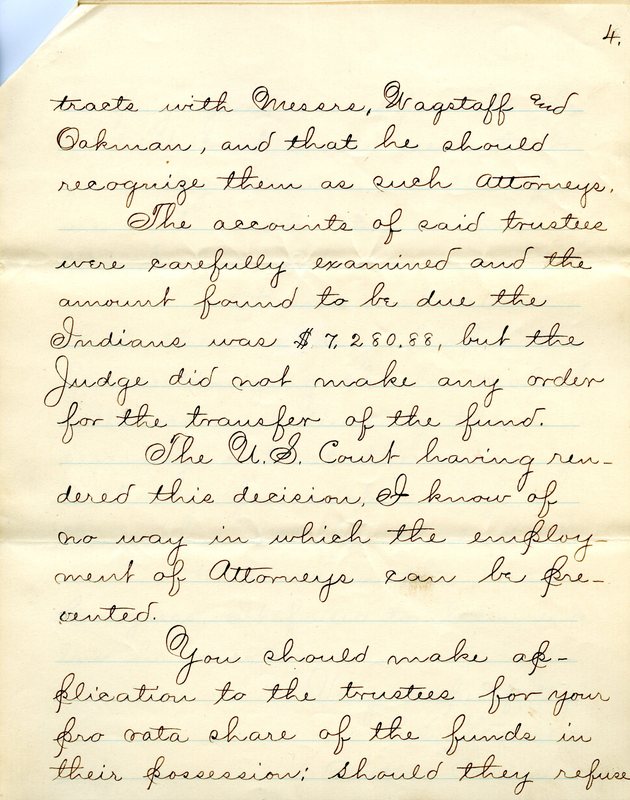 4.
tracts with Messrs, Wagstaff and
Oakman, and that he should
recognize them as such Attorneys.
The accounts of said trustees
were carefully examined and the
amount found to be due the
Indians was $7,280.88, but the
Judge did not make any order
for the transfer of the fund.
The U.S. Court having ren-
dered this decision, I know of
no way in which the employ-
ment of Attorneys can be pre-
vented.
You should make ap-
plication to the trustees for your
pro rata share of the funds in
their possession; should they refuse